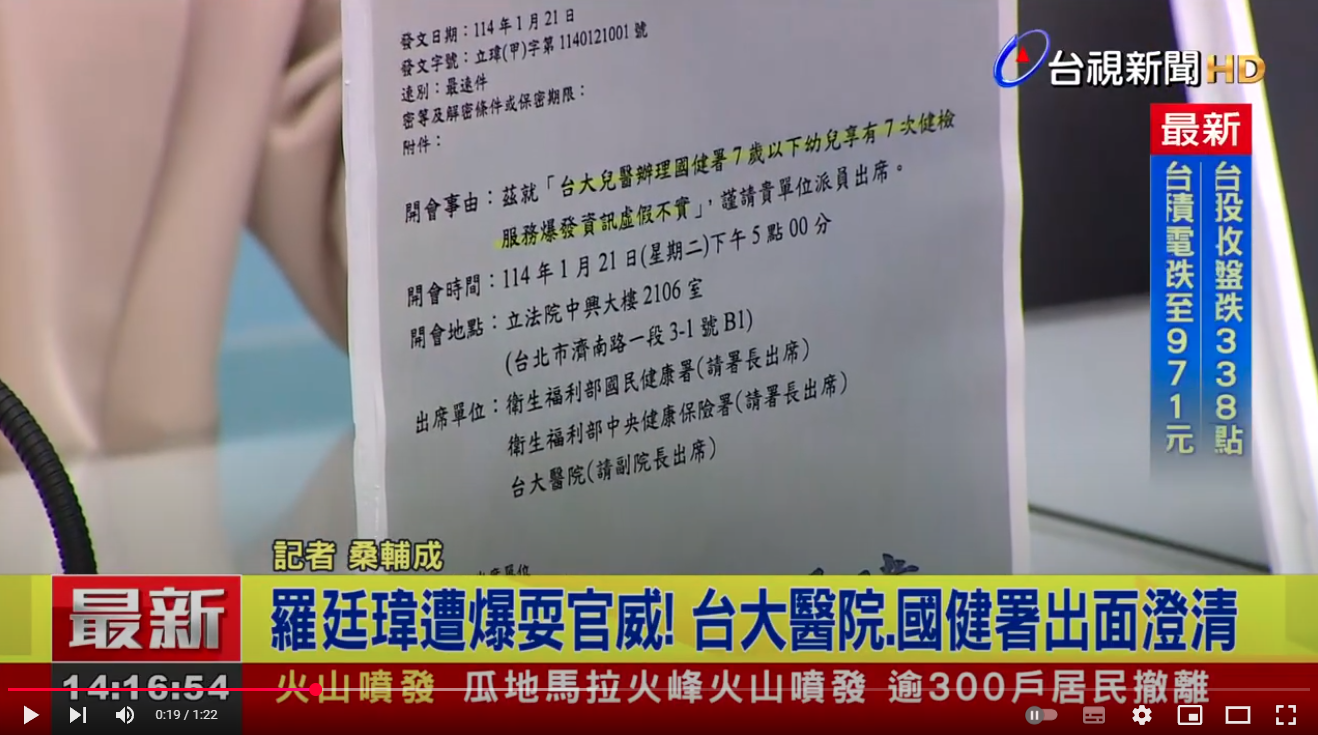 發文日期：114年1月21日
發文字號：立瑋(甲)字第1140121001號
速別：最速件
密等及解密條件或保密期限：
附件：
開會事由：茲就「台大兒醫辦理國健署7歲以下幼兒享有7次健檢
服務爆發資訊虛假不實」，謹請貴單位派員出席。
開會時間：114年1月21日(星期二)下午5點00分
開會地點：立法院中興大樓2106室
(台北市濟南路一段3-1號B1)
出席單位：衛生福利部國民健康署(請署長出席)
衛生福利部中央健康保險署(請署長出席)
台大醫院(請副院長出席)
台視新聞HD
最新
台投收盤跌338點
台積電跌至971元
記者 桑輔成
最新
羅廷瑋遭爆耍官威! 台大醫院.國健署出面澄清
14:16:54
火山噴發 瓜地馬拉火峰火山噴發 逾300戶居民撤離
0:19 / 1:22